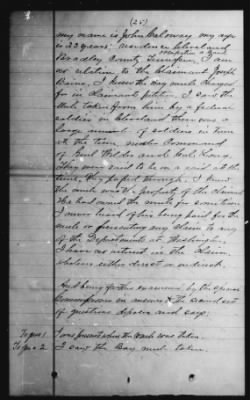 (25)
my name is John Caloway my age
is 22 years residence Cleveland
occupation a
Bradley County Tennessee, I am
no relation to the Claimant Joseph
I knew the Bay mule charged
for in Claimants petition. I saw the
Mule taken from him by a federal
soldier in Cleveland there was a
large amount of soldiers in town
at the time under command
of Genl Wilder and Col. Long.
They were said to be on a raid at the
time, they passed through. I knew
the mule was the property of the claimant
He had owned the mule for sometime
I never heard of his being paid for the
mule or presenting any claim to any
of the Departments at Washington.
I have no interest in the Claim
whatever either direct or indirect.
And being further examined by the special
Commissioner in answer to the second set
of questions and says:
To ques 1. I was present when the mule was taken.
To ques 2 I saw the Bay mule taken.